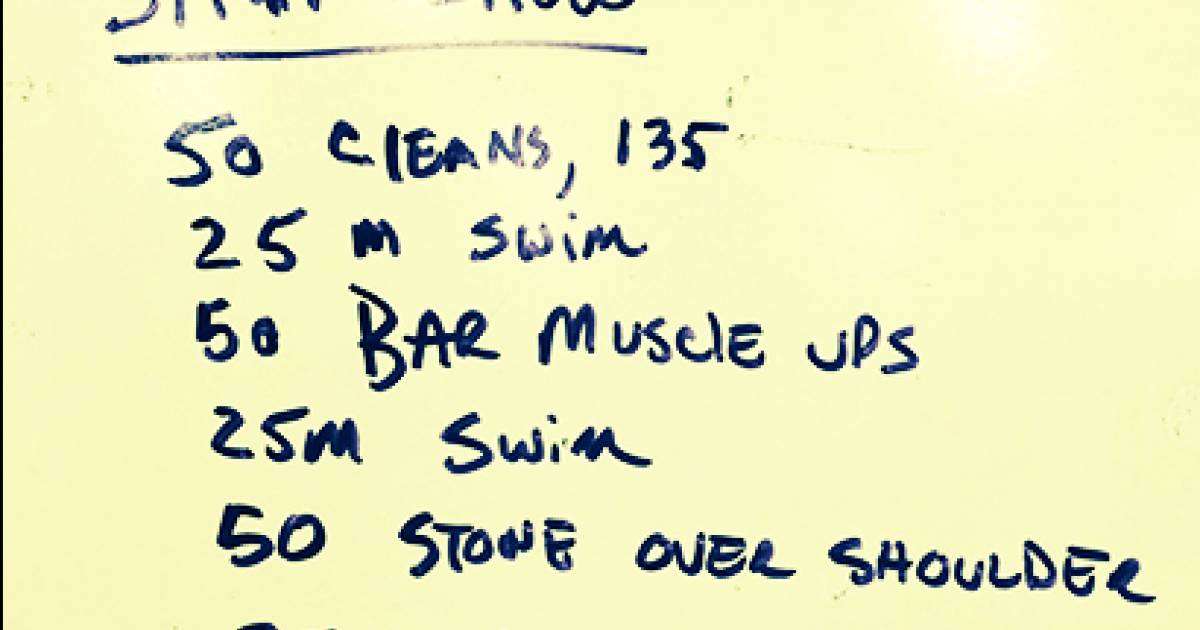 50 CLEANS, 135
25 m swim
50 BAR MUSCLE UPS
25m swim
50 STONE OVER SHOULDER